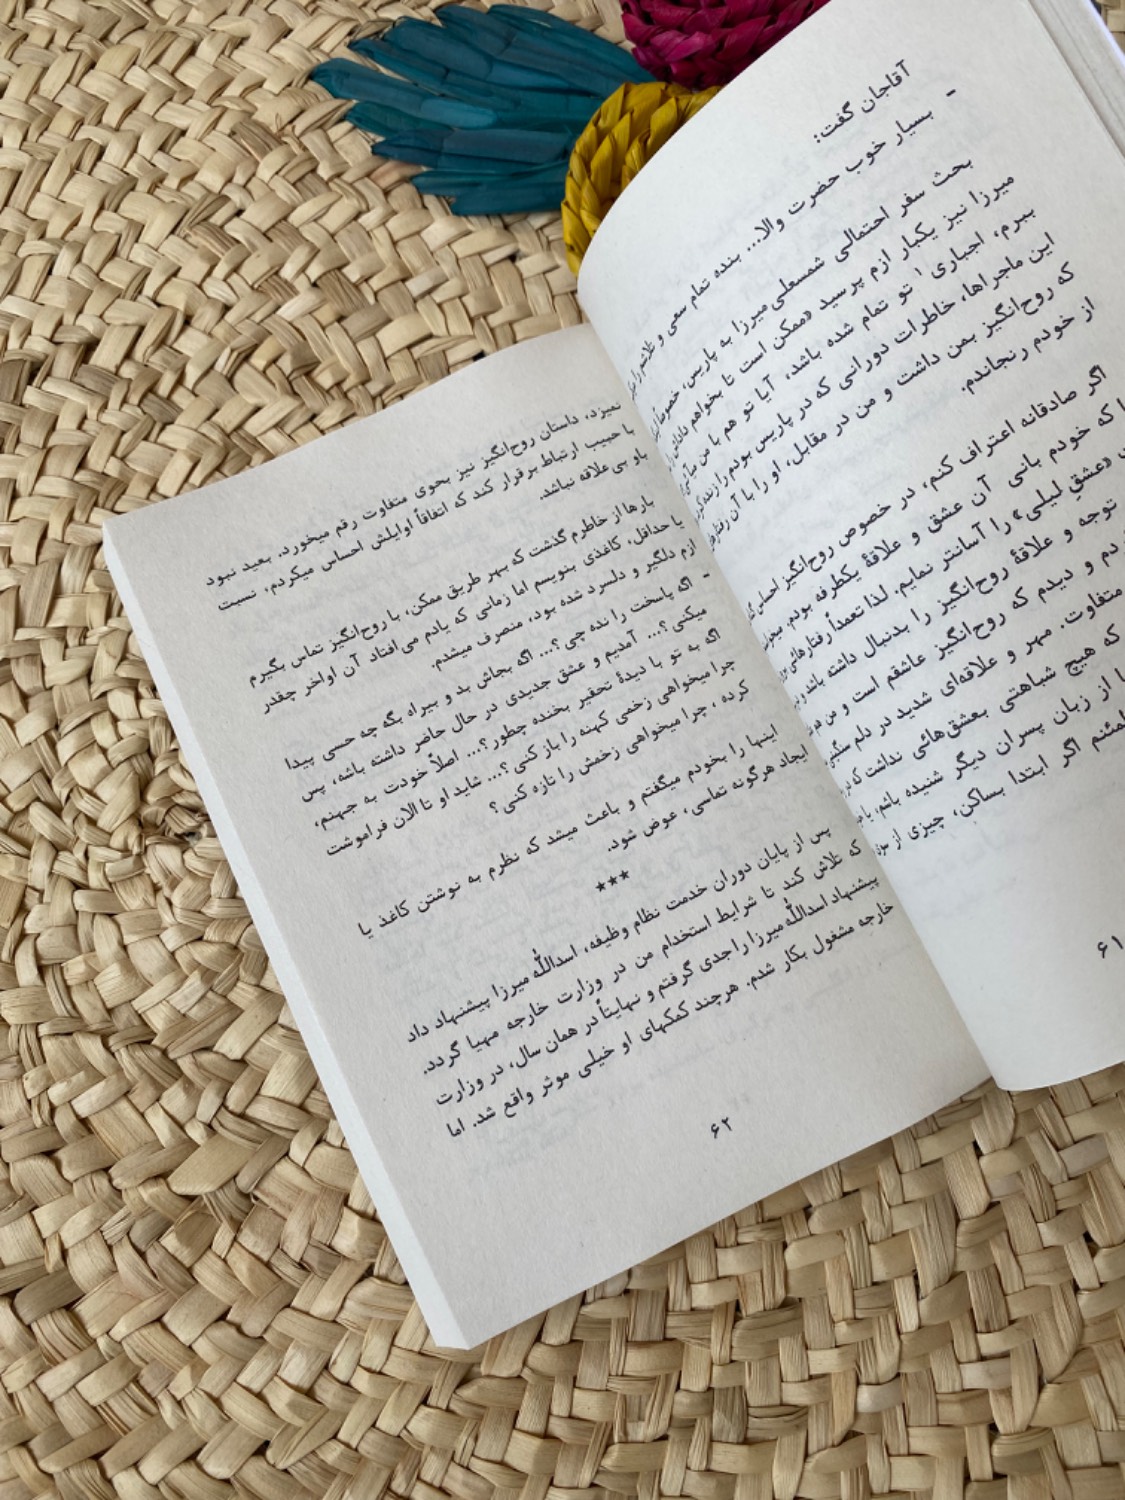 آقاجان گفت:
- بسیار خوب حضرت والا... بنده تمام سعی و تلاشم را
بحث سفر احتمالی شمسعلی‌میرزا به پاریس، خصوصاً
میرزا نیز یکبار ازم پرسید «ممکن است تا بخواهم
ببرم، اجباری ۱ تو تمام شده باشد، آیا تو هم با من
این ماجراها، خاطرات دورانی که در پاریس بودم را زنده
که روح‌انگیز بمن داشت و من در مقابل، او را با آن
از خودم رنجاندم.
اگر صادقانه اعتراف کنم، در خصوص روح‌انگیز
که خودم بانی آن عشق و علاقۀ یکطرفه بودم.
«عشقِ لیلی» را آسانتر نمایم. لذا تعمداً رفتارهائی
توجه و علاقۀ روح‌انگیز را بدنبال داشته باشد
دم و دیدم که روح‌انگیز عاشقم است و من
متفاوت. مهر و علاقه‌ای شدید در دلم
که هیچ شباهتی بعشق‌هائی نداشت که
از زبان پسران دیگر شنیده باشم،
اگر ابتدا بساکن، چیزی از
۶۱
نمیزد، داستان روح‌انگیز نیز بحوی متفاوت رقم میخورد. بعید نبود
با حبیب ارتباط برقرار کند که اتفاقاً اوایلش احساس میکردم، نسبت
باو بی‌علاقه نباشد.
بارها از خاطرم گذشت که بهر طریق ممکن، با روح‌انگیز تماس بگیرم
یا حداقل، کاغذی بنویسم اما زمانی که یادم می‌افتاد آن اواخر چقدر
ازم دلگیر و دلسرد شده بود، منصرف میشدم.
- اگه پاسخت را نده چی؟... اگه بجاش بد و بیراه بگه چه حسی پیدا
میکنی؟... آمدیم و عشق جدیدی در حال حاضر داشته باشه، پس
اگه به تو با دیدۀ تحقیر بخنده چطور؟... اصلاً خودت به جهنم،
چرا میخواهی زخمی کهنه را باز کنی؟... شاید او تا الان فراموشت
کرده ، چرا میخواهی زخمش را تازه کنی؟
اینها را بخودم میگفتم و باعث میشد که نظرم به نوشتن کاغذ یا
ایجاد هرگونه تماسی، عوض شود.
***
پس از پایان دوران خدمت نظام وظیفه، اسدالله‌میرزا پیشنهاد داد
که تلاش کند تا شرایط استخدام من در وزارت خارجه مهیا گردد.
پیشنهاد اسدالله‌میرزا را جدی گرفتم و نهایتاً در همان سال، در وزارت
خارجه مشغول بکار شدم. هرچند کمکهای او خیلی موثر واقع شد. اما
۶۲